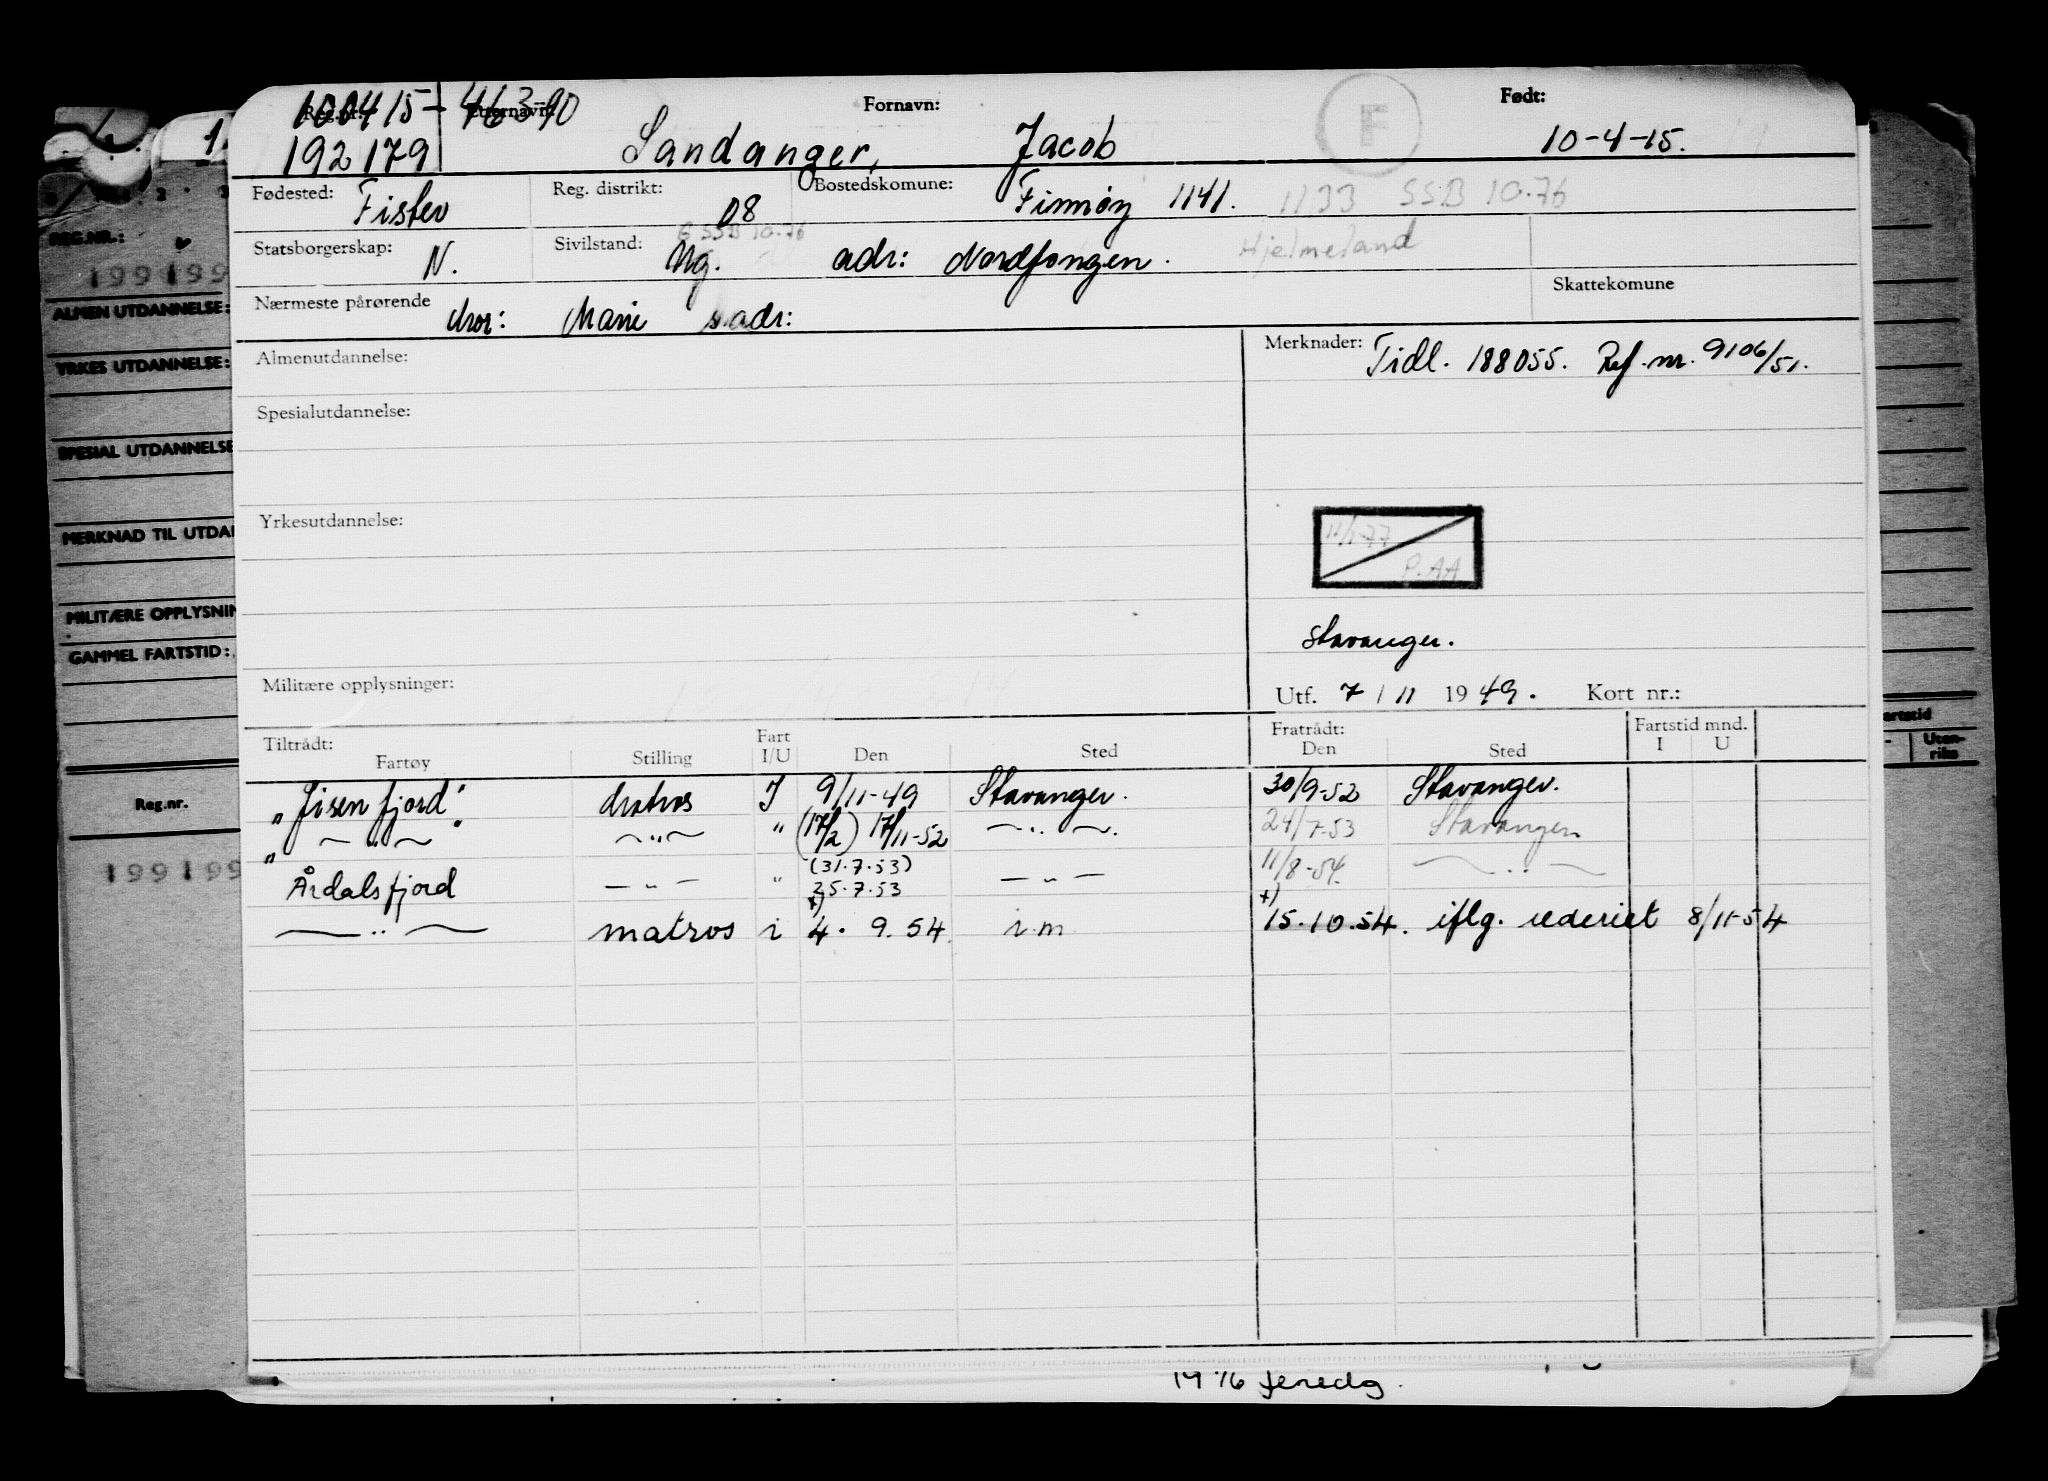 100415-46390
Reg.nr. Etternavn: Fornavn: Født:
192179 Sandanger, Jacob 10-4-15.
F
Fødested: Fister Reg. distrikt: 08 Bostedskomune: Finnøy 1141. 1133 SSB 10.76
G SSB 10.76
Statsborgerskap: N. Sivilstand: Ug. adr: Nordfongen. Hjelmeland
Nærmeste pårørende Mor: Marie s. adr: Skattekomune
Almenutdannelse: Merknader: Tidl. 188055. Ref. nr. 9106/51.
Spesialutdannelse:
Yrkesutdannelse:
11/1-77
P.AA
Stavanger.
Militære opplysninger: Utf. 7 / 11 1949. Kort nr.:
Tiltrådt: Fart Fratrådt: Fartstid mnd.
Fartøy Stilling I/U Den Sted Den Sted I U
"Jøsenfjord". Matros I 9/11-49 Stavanger. 30/9-52 Stavanger.
" — " — — " — " (17/2) 17/11-52 — " —. 24/7-53 Stavanger
(31.7.53)
Årdalsfjord — " — " 25.7.53 — " — 11/8-54. — " —
x) x)
— " — matros i 4. 9. 54. i.m 15.10.54. iflg. rederiet 8/11-54
1976 ferdig.
1
2 3
REG.NR.:
199199
ALMEN UTDANNELSE:
YRKES UTDANNELSE:
SPESIAL UTDANNELSE
MERKNAD TIL UTDAN
MILITÆRE OPPLYSNIN
GAMMEL FARTSTID:
Reg.nr.
199199
artstid
Uten-
riks